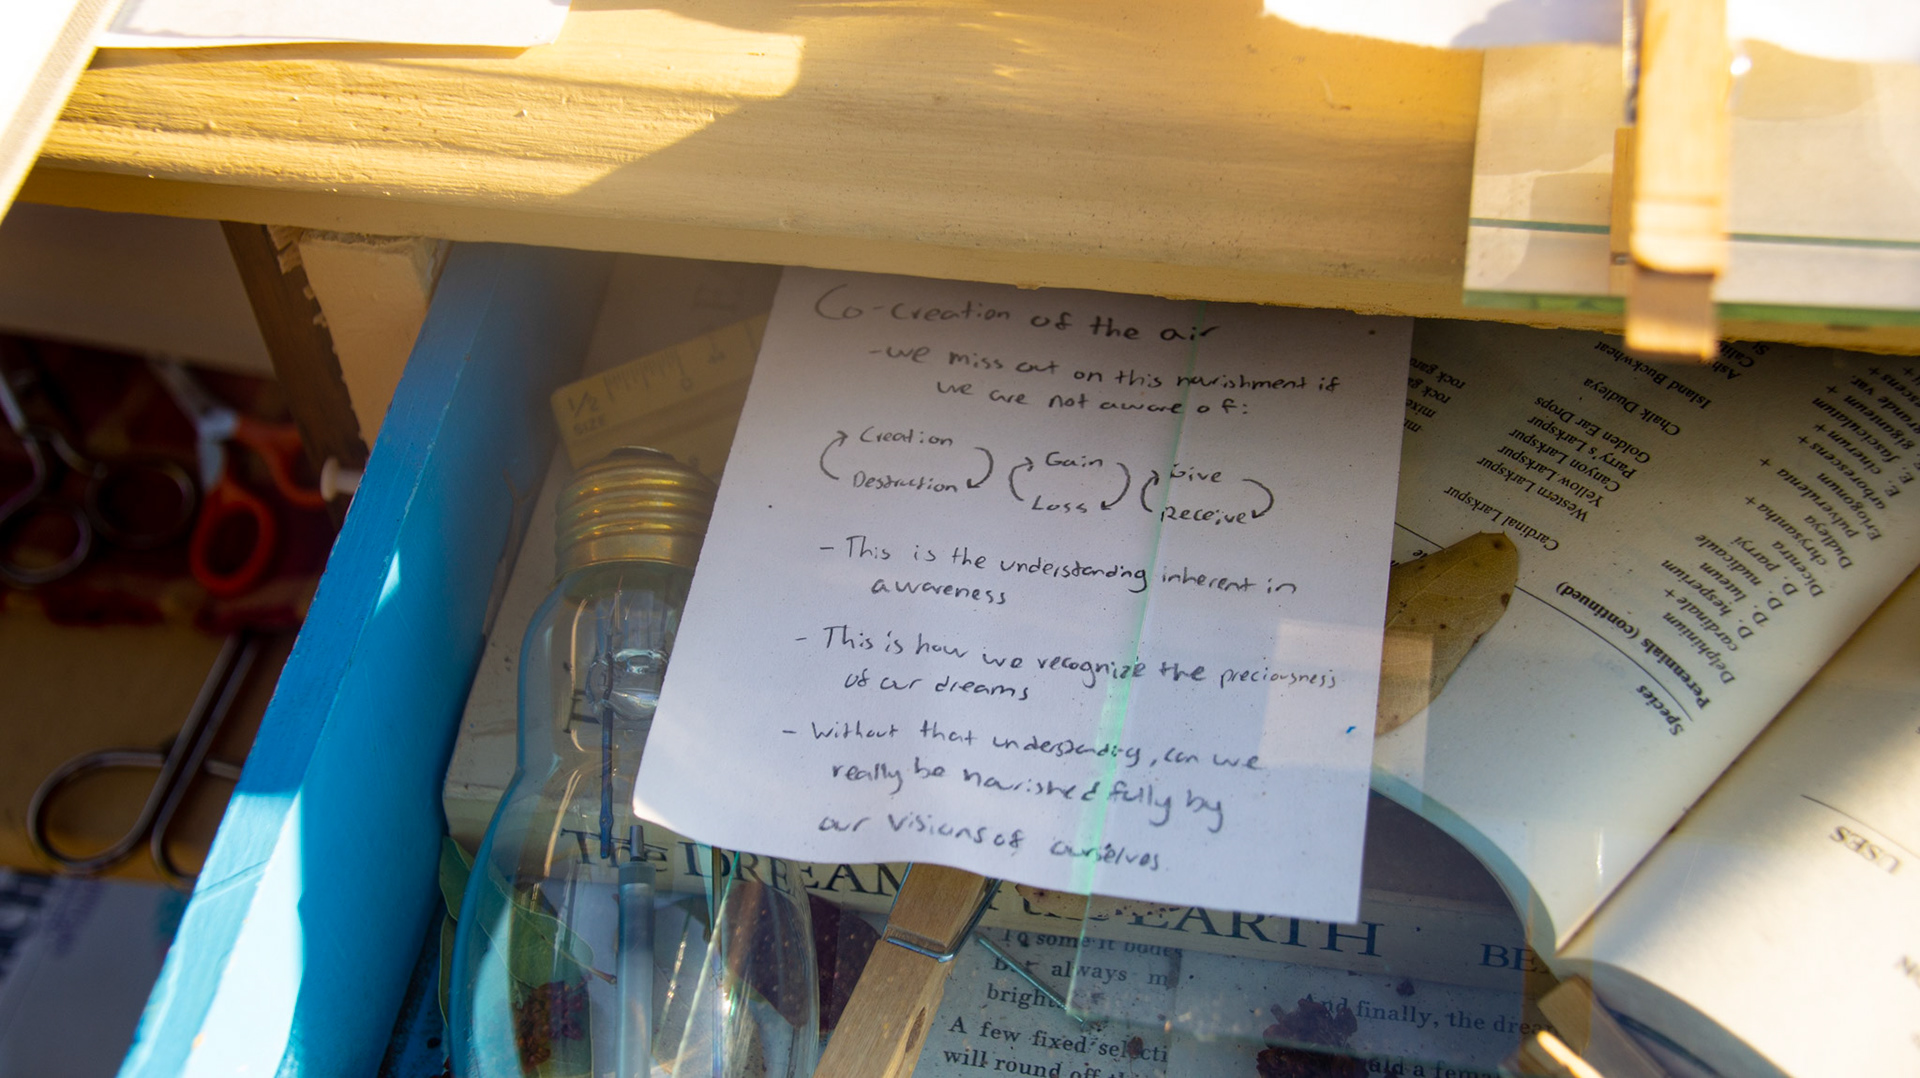 Co-creation of the air
-we miss out on this nourishment if
we are not aware of:
Creation
Destruction
Gain
Loss
Give
Receive
- This is the understanding inherent in
awareness
- This is how we recognize the preciousness
of our dreams
- Without that understanding, can we
really be nourished fully by
our visions of ourselves.
1/2
SIZE
The DREAM
EARTH
BE
To some it
always m
bright
A few fixed selecti
will round off
And finally, the drea
Species
Perennials (continued)
Delphinium
cardinale +
Cardinal Larkspur
D. hesperium
Western Larkspur
D. luteum
Yellow Larkspur
D. nudicaule
Canyon Larkspur
D. parryi
Parry's Larkspur
Dicentra chrysantha +
Golden Ear Drops
Dudleya pulverulenta
Chalk Dudleya
Eriogonum
arborescens +
Island Buckwheat
E. cinereum +
E. fasciculatum +
E. giganteum +
E. grande var.
mix
rock gar
rock gar
USES